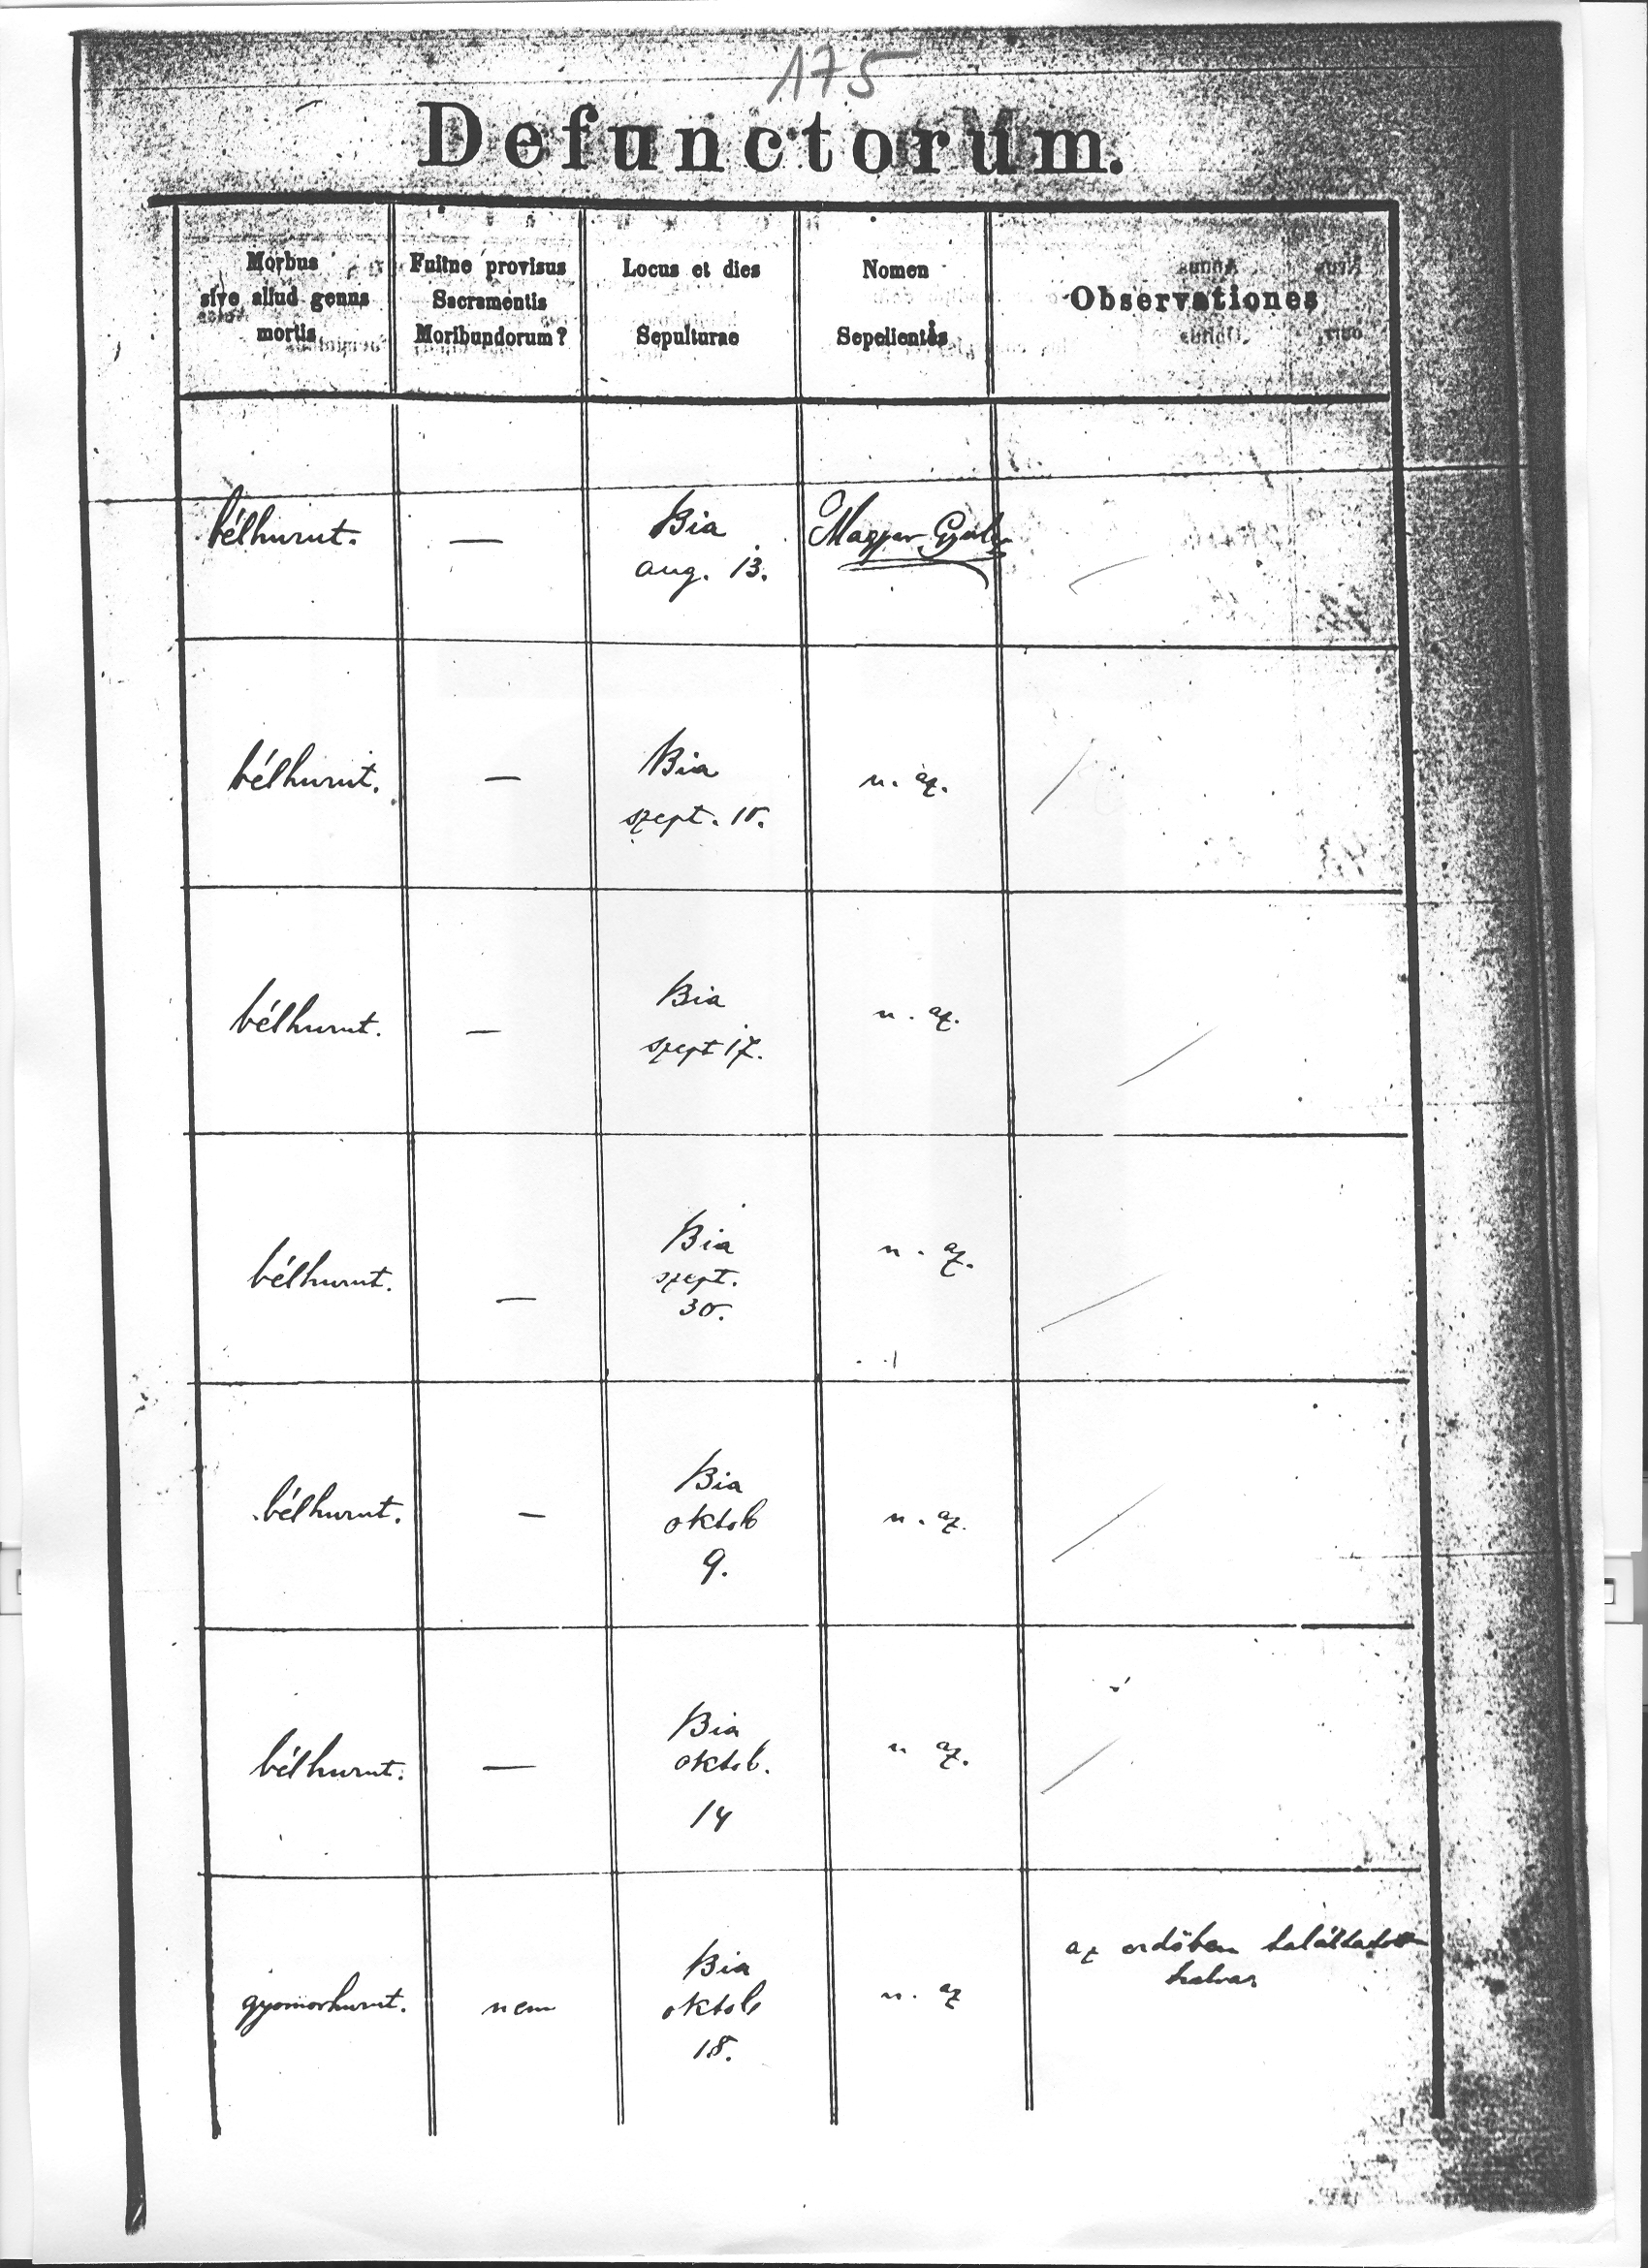 175
Defunctorum.
Morbus
sive aliud genus
mortis
Fuitne provisus
Sacramentis
Moribundorum?
Locus et dies
Sepulturae
Nomen
Sepelientis
Observationes
bélhurut.
—
Bia
aug. 13.
Magyar Gyula
bélhurut.
—
Bia
szept. 10.
u. az.
bélhurut.
—
Bia
szept 17.
u. az.
bélhurut.
—
Bia
szept.
30.
u. az.
bélhurut.
—
Bia
oktob
9.
u. az.
bélhurut.
—
Bia
oktob.
14
u az.
gyomorhurut.
nem
Bia
oktob
18.
u. az
az erdőben találtatott
halva